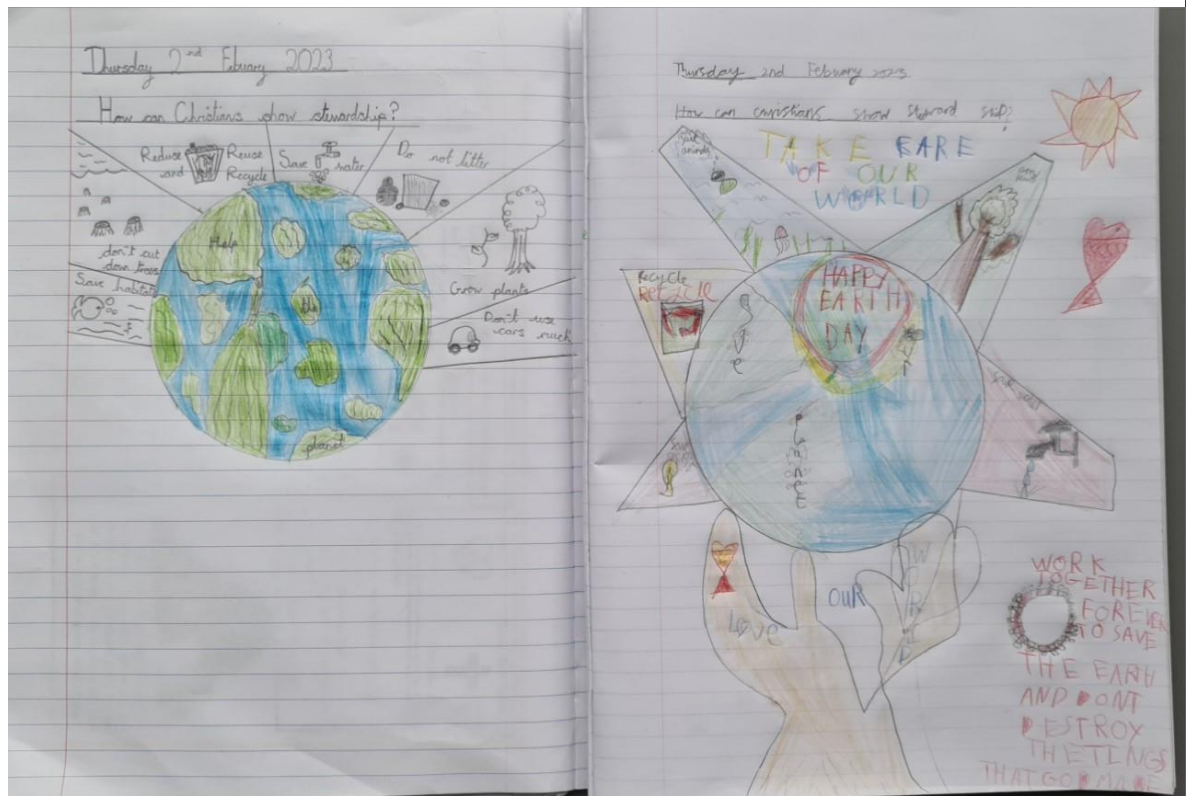 Thursday 2nd Febuary 2023
How can Christians show stewardship?
Reduse Reuse
and Recycle
Save water
Do not litter
don't cut
down trees
Save habitats
Grow plants
Don't use
cars much
Help
the
planet
Thursday 2nd Febuary 2023
How can christians show steward ship?
TAKE EARE
OF OUR
WORLD
save
animals
Recycle
RECYCLE
HAPPY
EARTH
DAY
Save
planet
save
LOVE
OUR
WORLD
WORK
TOGETHER
FOREVER
TO SAVE
THE EARTH
AND DONT
DESTROY
THETINGS
THAT GOD MADE